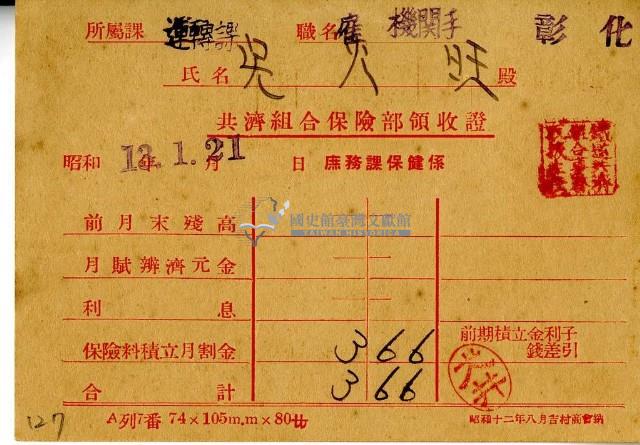 所屬課 運轉課 職名 雇 機關手 彰化
氏名 火旺 殿
共濟組合保險部領收證
昭和 13.1.21 年 月 日 庶務課保健係
國史館臺灣文獻館
TAIWAN HISTORICA
前月末殘高
月賦辨濟元金
利息
前期積立金利子
錢差引
保險料積立月割金 3 66
合計 3 66
127
A列7番 74×105m.m×80廿
昭和十二年八月吉村商會納